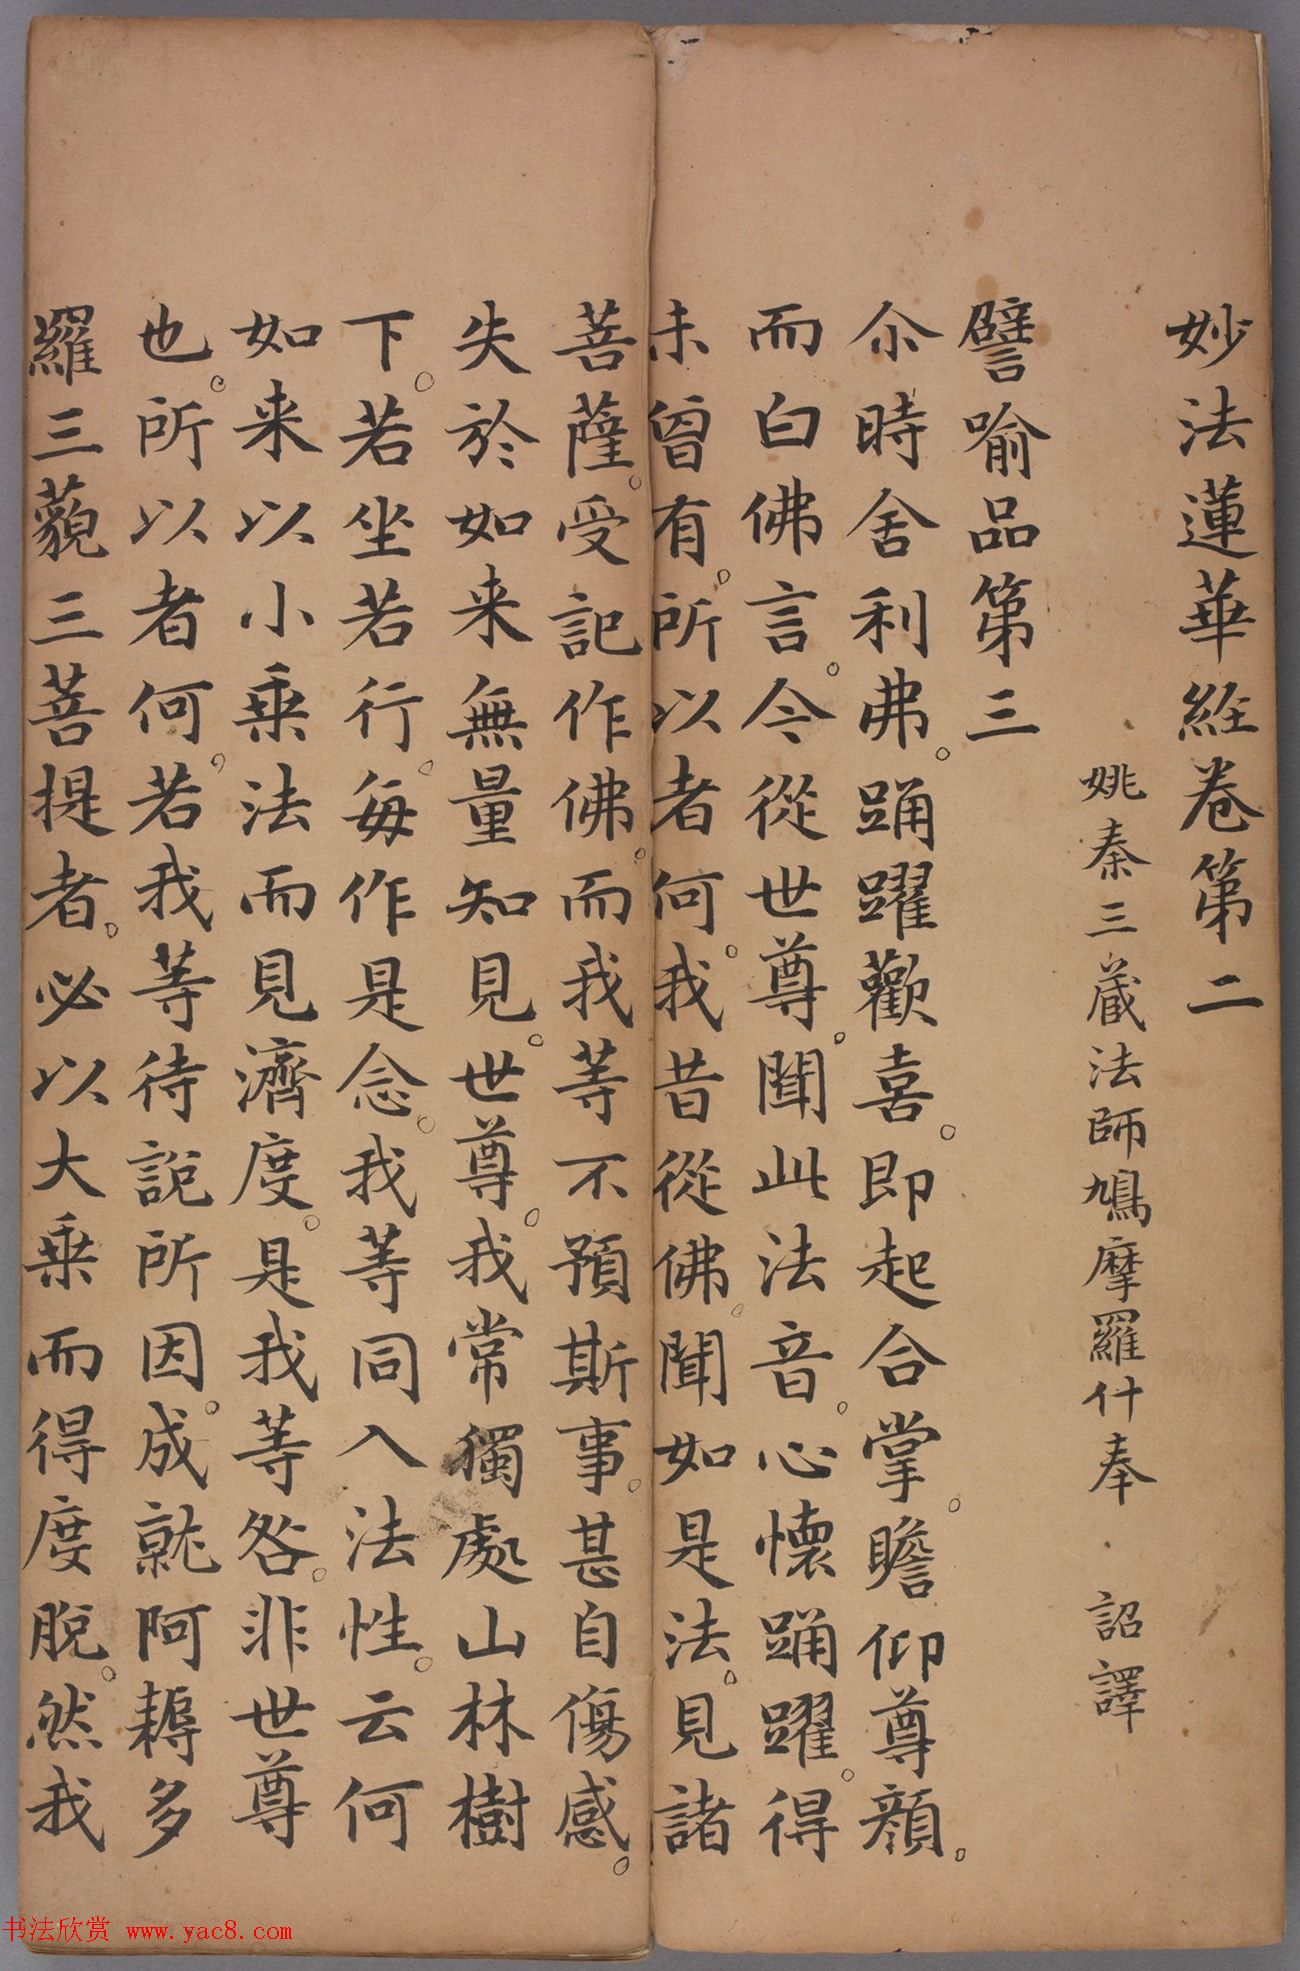 妙法蓮華経卷第二
姚秦三藏法師鳩摩羅什奉 詔譯
譬喻品第三
尒時舍利弗。踊躍歡喜。即起合掌。瞻仰尊顔。
而白佛言。今從世尊。聞此法音。心懷踊躍。得
未曾有。所以者何。我昔從佛。聞如是法。見諸
菩薩。受記作佛。而我等不預斯事。甚自傷感。
失於如来無量知見。世尊。我常獨處山林樹
下。若坐若行。每作是念。我等同入法性。云何
如来以小乗法而見濟度。是我等咎。非世尊
也。所以者何。若我等待說所因。成就阿耨多
羅三藐三菩提者。必以大乗而得度脫。然我
书法欣赏 www.yac8.com